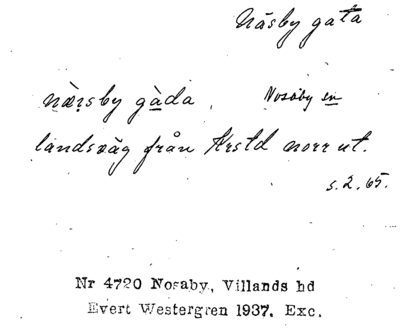 Näsby gata
næsby gàda, Nosaby sn
landsväg från Krstd norr ut.
s. 2. 65.
Nr 4720 Nosaby, Villands hd
Evert Westergren 1937. Exc.